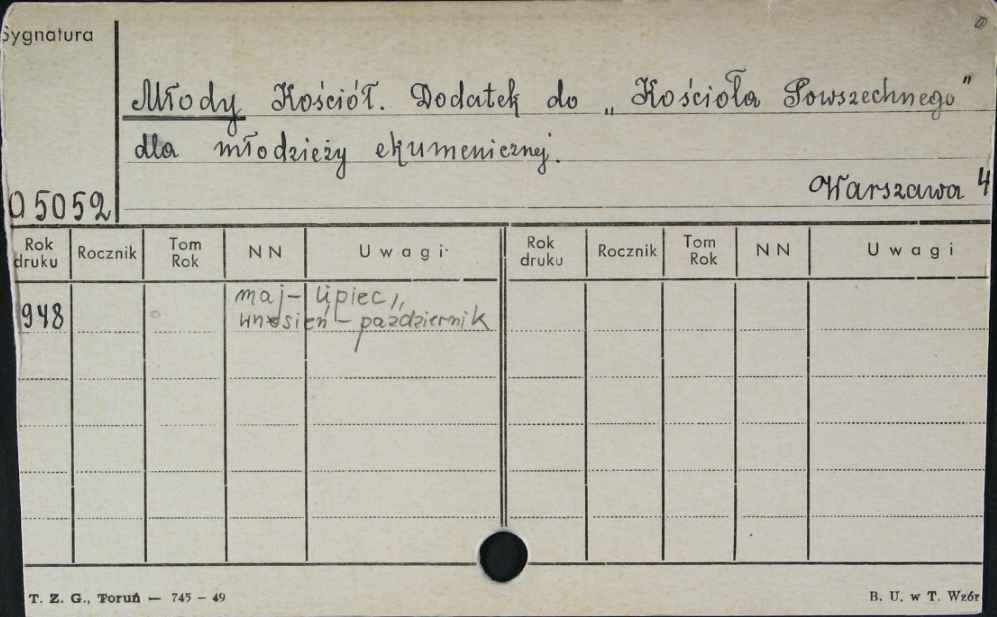 Sygnatura
Młody Kościół. Dodatek do „Kościoła Powszechnego"
dla młodzieży ekumenicznej.
Warszawa 4
05052
Rok druku Rocznik Tom Rok NN Uwagi Rok druku Rocznik Tom Rok NN Uwagi
948 maj - lipiec,
wrzesień - październik
T. Z. G., Toruń — 745 - 49 B. U. w T. Wzór